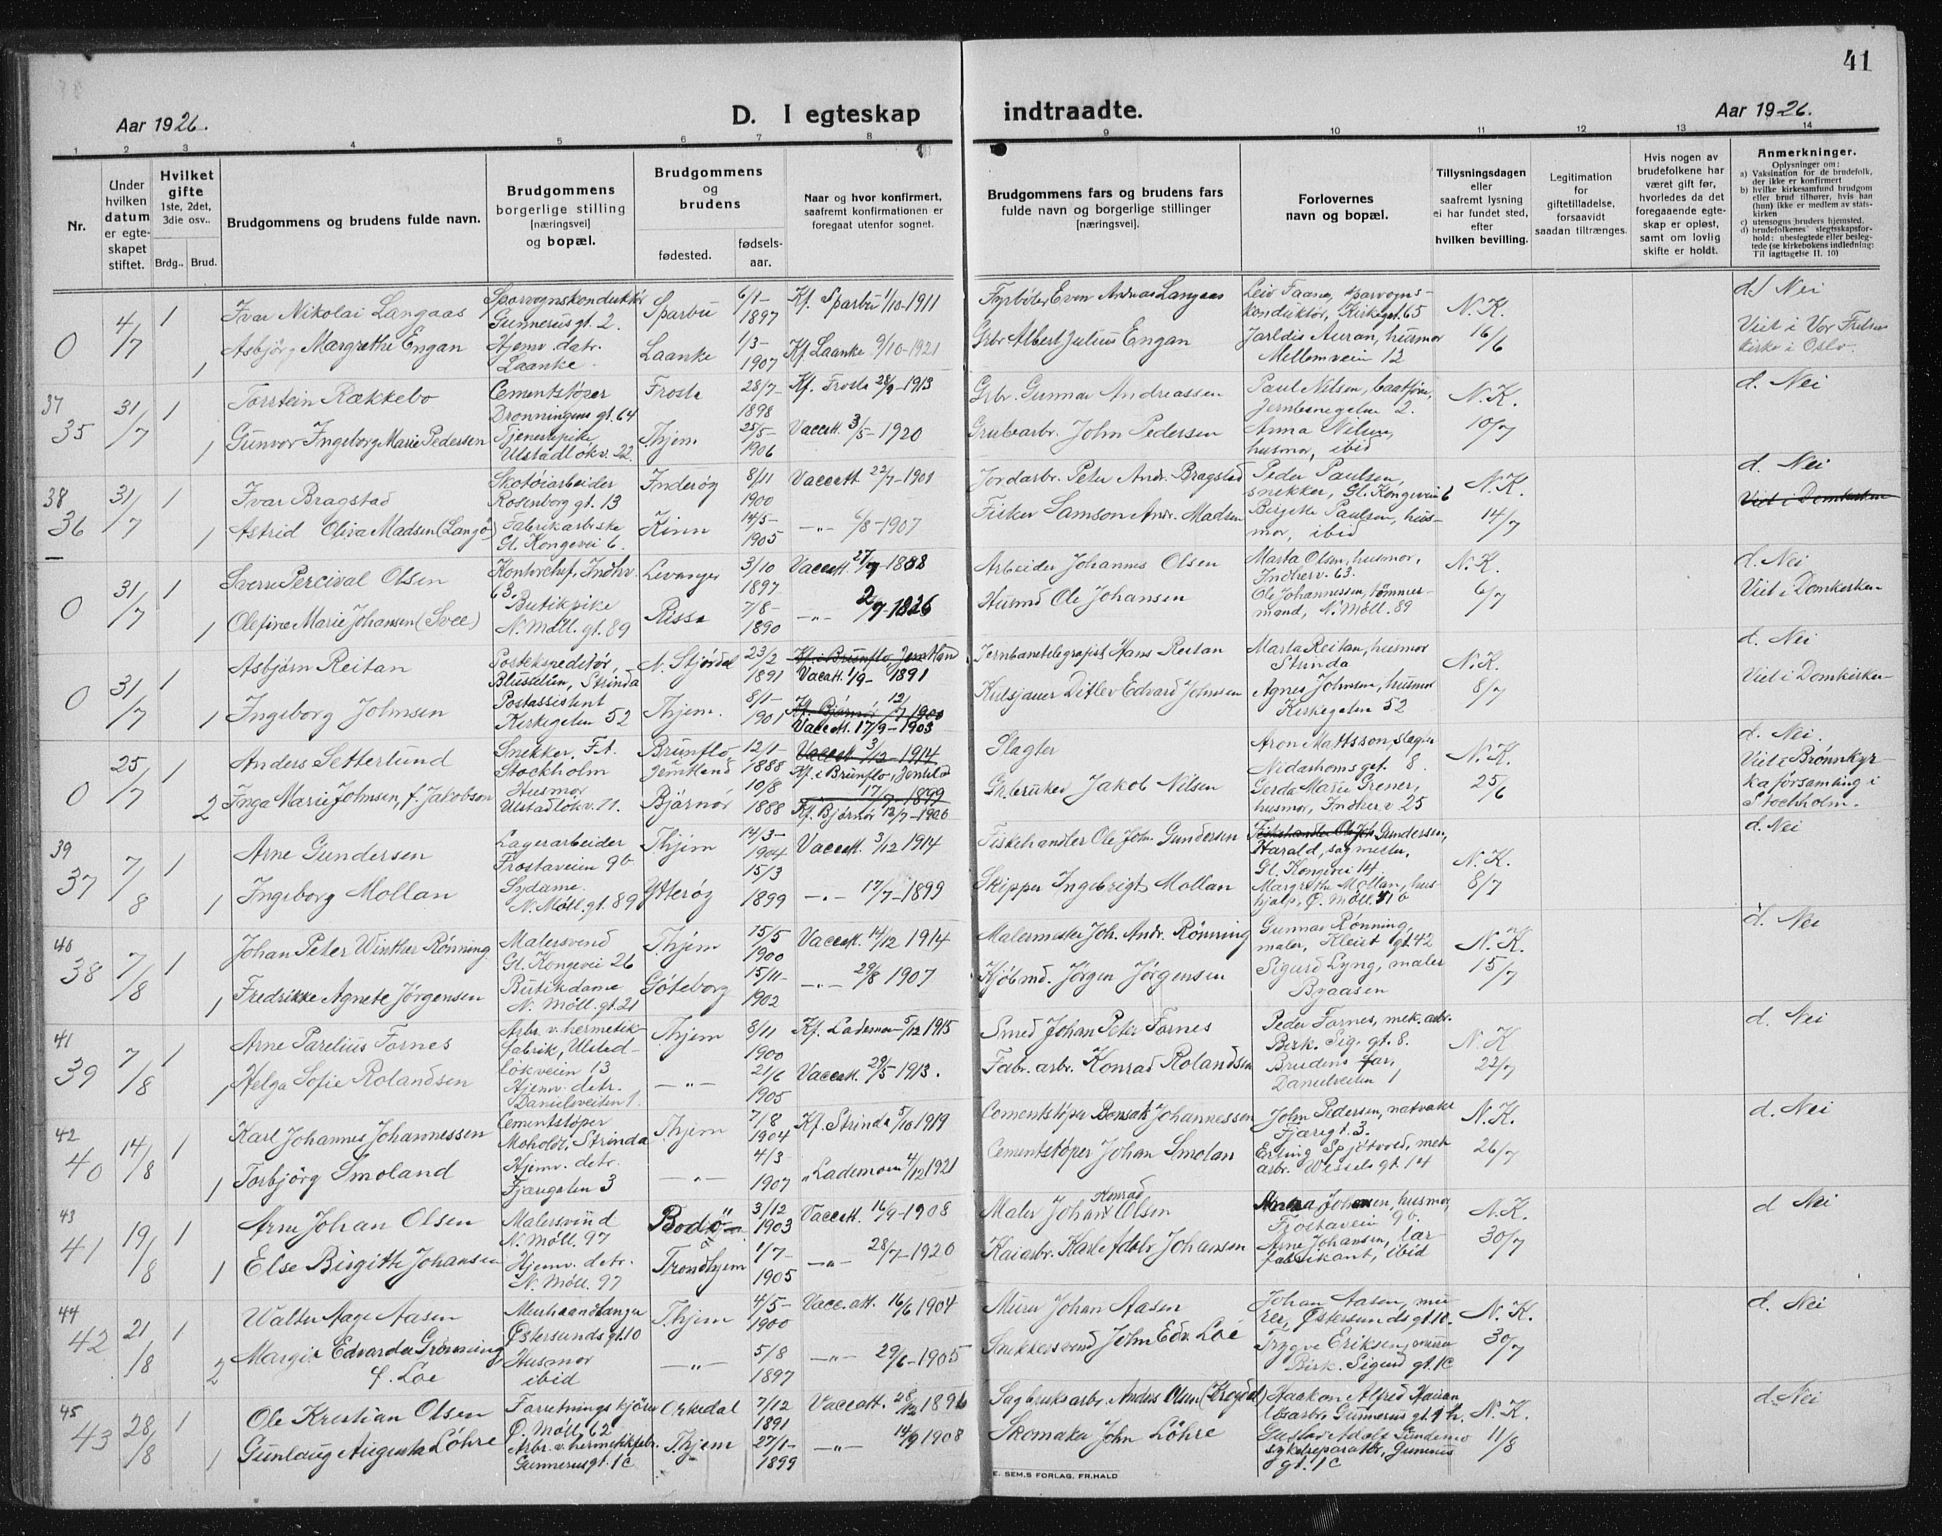 41
Aar 1926.
D. I egteskap
indtraadte.
Aar 1926.
1 2 3 4 5 6 7 8 9 10 11 12 13 14
Nr.
Under hvilken datum er egteskapet stiftet.
Hvilket gifte 1ste, 2det, 3die osv..
Brdg.. Brud.
Brudgommens og brudens fulde navn.
Brudgommens borgerlige stilling [næringsvei] og bopæl.
Brudgommens og brudens
fødested. fødsels-aar.
Naar og hvor konfirmert, saafremt konfirmationen er foregaat utenfor sognet.
Brudgommens fars og brudens fars fulde navn og borgerlige stillinger [næringsvei].
Forlovernes navn og bopæl.
Tillysningsdagen eller saafremt lysning ei har fundet sted, efter hvilken bevilling.
Legitimation for giftetilladelse, forsaavidt saadan tiltrænges.
Hvis nogen av brudefolkene har været gift før, hvorledes da det foregaaende egteskap er opløst, samt om lovlig skifte er holdt.
Anmerkninger.
Oplysninger om:
a) Vaksination for de brudefolk, der ikke er konfirmert
b) hvilke kirkesamfund brudgom eller brud tilhører, hvis han (hun) ikke er medlem av statskirken
c) utensogns bruders hjemsted.
d) brudefolkenes slegtsskapsforhold: ubeslegtede eller beslegtede (se kirkebokens indledning: Til iagttagelse II. 10)
0 4/7 1 Ivar Nikolai Langaas Sporvognskonduktör Gunnerusgt. 2. Sparbu 6/1-1897 Kf. Sparbu 1/10-1911 Fyrböter Even Andreas Langaas Leiv Faanes, sporvognskonduktör, Kirkegt. 65 N.K. 16/6 d.) Nei
1 Asbjörg Margrethe Engan Hjemv. datr. Laanke. Laanke 1/3-1907 Kf. Laanke 9/10-1921 Grbr. Albert Julius Engan Jarldis Auran, husmor Mellemveien 12 Viet i Vor Frelsers kirke i Oslo.
37 35 31/7 1 Torstein Rækkebo Cementstöper Dronningens gt. 64 Frosta 28/7-1898 Kf. Frosta 28/9-1913 Grbr. Gunnar Andreassen Paul Nilsen, baatförer, Jernbanegaten 2. N.K. 10/7 d. Nei
1 Gunvor Ingeborg Marie Pedersen Tjenestepike Ulstadlökv. 22. Thjem 25/5-1906 Vaccatt. 3/5-1920 Grubearbr. John Pedersen Anna Nilsen, husmor, ibid
38 36 31/7 1 Ivar Bragstad Skotöiarbeider Rosenborg gt. 13 Inderöy 8/11 1900 Vaccatt 22/7-1901 Jordarbr. Peter Andr. Bragstad Peder Paulsen, snekker, Gl. Kongevei 6 N.K. 14/7 d. Nei
1 Astrid Oliva Madsen (Langö) Fabrikarbeiderske Gl. Kongevei 6. Kinn 14/5-1905 -"- 6/8-1907 Fisker Samson Andr. Madsen Berjette Paulsen, husmor, ibid Viet i Domkirken
0 31/7 1 Sverre Percival Olsen Kontorchef, Indhv. 63. Levanger 3/10 1897 Vaccatt. 27/7-1888 Arbeider Johannes Olsen Marta Olsen, husmor, Indherv. 63. N.K. 6/7 d. Nei
1 Olefine Marie Johansen (Svee) Butikpike N. Möll. gt. 89 Rissa 7/8-1890 -"- 2/7-1826 Husmd Ole Johansen Ole Johannessen, tömmermand, N. Möll. 89 Viet i Domkirken
0 31/7 1 Asbjörn Reitan Postekspeditör, Blusuvolden, Strinda N. Stjördal 23/2 1891 Kf. i Brunflo Jemtland Vacatt. 1/9-1891 Jernbanetelegrafist Hans Reitan Marta Reitan, husmor Strinda N.K. 8/7 d. Nei
1 Ingeborg Johnsen Postassistent Kirkegaten 52 Thjem. 8/1-1901 Kf. Bjørnör 12/7 1900 Vaccatt. 17/9-1903 Kulsjauer Ditlev Edvard Johnsen Agnes Johnsen, husmor Kirkegaten 52 Viet i Domkirken
0 25/7 1 Anders Setterlund Snekker, F.t. Stockholm Brunflo Jemtland 12/1-1888 Vaccatt 3/12-1914 Kf. i Brunflo, Jemtld Slagter Aron Mattsson, slagter Nidarholms gt. 8. N.K. 25/6 d. Nei.
2 Inga Marie Johnsen, f. Jakobsen Husmor Ulstadlökv. 11. Bjørnör 10/8 1888 17/9-1899 Kf. Bjørnör 12/7-1906 Gbruker Jakob Nilsen Gerda Marie Grener, husmor, Indherv. 25 Viet i Brønnkyrkaförsamling i Stockholm.
39 37 7/8 1 Arne Gundersen Lagerarbeider Frostaveien 9b Thjem 14/3-1904 Vaccatt 3/12 1914 Fiskehandler Ole Johs. Gundersen Fiskehandler Ole Joh Gundersen, Harald, sagmester, Gl. Kongevei 14, N.K. 8/7 d. Nei
1 Ingeborg Mollan Sydame N. Möll. gt. 89 Ytteröy 15/3 1899 -"- 17/7-1899 Skipper Ingebrigt Mollan Margrethe Mollan, hushjelp, Ö. Möll. 41b
40 38 7/8 1 Johan Peter Winther Rönning Malersvend Gl. Kongevei 26 Thjem 15/5 1900 Vaccatt 14/12 1914 Malermester Joh. Andr. Rönning Gunnar Rönning, maler, Kleist gt. 42 N.K. 15/7 d. Nei
1 Fredrikke Agnete Jörgensen Butikdame N. Möll. gt. 21 Göteborg 15/11-1902 -"- 29/8 1907 Kjöbmd. Jörgen Jörgensen Sigurd Lyng, maler Byaasen
41 39 7/8 1 Arne Parelius Fornes Arbr. v. hermetikfabrik, Ulstadlökveien 13 Thjem 8/11 1900 Kf. Lademoen 5/12 1915 Smed Johan Peter Fornes Peder Fornes, mek. arbr. Birk. Sig. gt. 8. N.K. 22/7 d. Nei
1 Helga Sofie Rolandsen Hjemv. datr. Danielsveiten 1. -"- 21/6 1905 Vaccatt. 29/5 1913. Fabr. arbr. Konrad Rolandsen Brudens far, Danielsveiten 1
42 40 14/8 1 Karl Johannes Johannessen Cementstöper Moholdt, Strinda Thjem 7/8 1904 Kf. Strinda 5/10 1919 Cementstöper Johannessen John Pedersen, natvakt Fjæregt. 3. N.K. 26/7 d. Nei
1 Torbjörg Smoland Hjemv. detr. Fjæregaten 3 -"- 4/3-1907 " Lademoen 4/12 1921 Cementstöper Johan Smolan Erling Spjötvold, mek arbr. Wessels gt. 14
43 41 19/8 1 Arne Johan Olsen Malersvend N. Möll. 97 Bodö 3/12 1903 Vaccatt. 16/9-1908 Maler Johan Konrad Olsen Anna Johansen, husmor, Frostaveien 9b. N.K. 30/7 d Nei
1 Else Birgithe Johansen Hjemv. detr. N. Möll. 97 Trondhjem 1/7-1905 -"- 28/7-1920 Kaiarbr. Karle Adolv Johansen Arne Johansen, ibid
44 42 21/8 1 Walter Aage Aasen Murhaandlanger Østersunds gt. 10 Thjem 4/5-1900 Vacc.att. 16/6 1904 Murer Johan Aasen Johan Aasen, murer, Østersunds gt. 10. N.K. 30/7 d. Nei
2 Margit Edvarda Grönning f. Loe Husmor ibid -"- 5/8 1897 -"- 29/6-1905 Snekkersvend John Edv. Loe Trygve Eriksen, murer Birk. Sigurd gt. 1c
45 43 28/8 1 Ole Kristian Olsen Forretningskjörer Ö. Möll. 62 Orkedal 7/12 1891 Vaccatt. 28/12 1896 Sagbruksarbr. Anders Olsen Haakon Alfred Gunnerus gt. N.K. 11/8 d. Nei
1 Gunlaug Augusta Löhre Arbr. v. hermetikfabr. Gunnerusgt. 1c Thjem 27/1-1899 -"- 14/9 1908 Skomaker John Löhre Gustav Adolf Sundemo sykelreparatör, Gunnerus gt. 1c
E. SEM.S FORLAG, FR.HALD